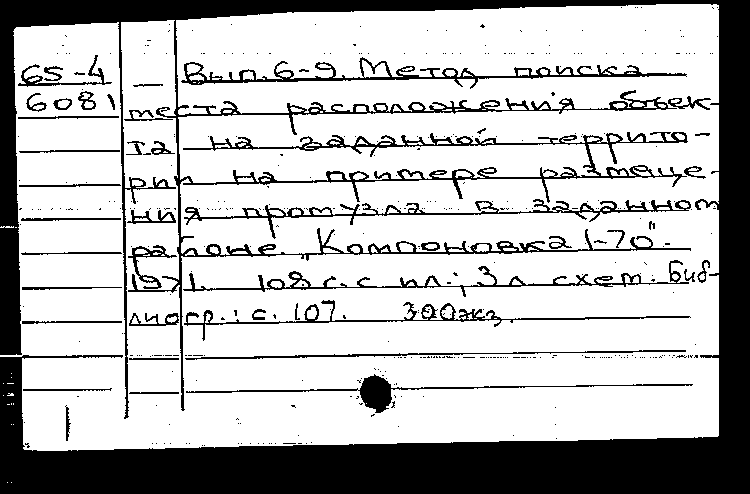 65-4 — Вып. 6-9. Метод поиска
6081 места расположения объек-
та на заданной террито-
рии на примере размеще-
ния промузла в заданном
районе „Компоновка 1-70".
1971. 108 с. с ил.; 3 л. схем. Биб-
лиогр.: с. 107. 300 экз.